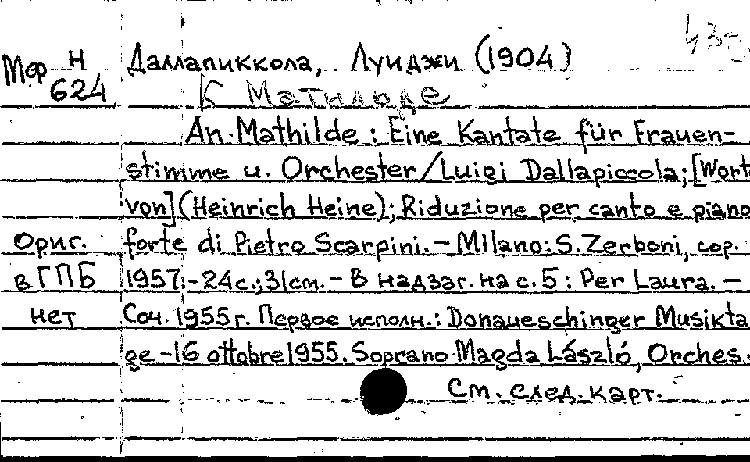 Мор Н 624 Даллапиккола, Луиджи (1904)
К Матильде
An Mathilde: Eine Kantate für Frauen-
stimme u. Orchester/Luigi Dallapiccola; [Wort
von] (Heinrich Heine); Riduzione per canto e piano
Ориг. forte di Pietro Scarpini. – Milano: S. Zerboni, cop.
в ГПБ 1957. – 24 с.; 31 cm. – В надзаг. на с. 5: Per Laura. –
нет Соч. 1955 г. Первое исполн.: Donaueschinger Musikta
ge – 16 ottobre 1955. Soprano Magda László, Orches.
См. след. карт.